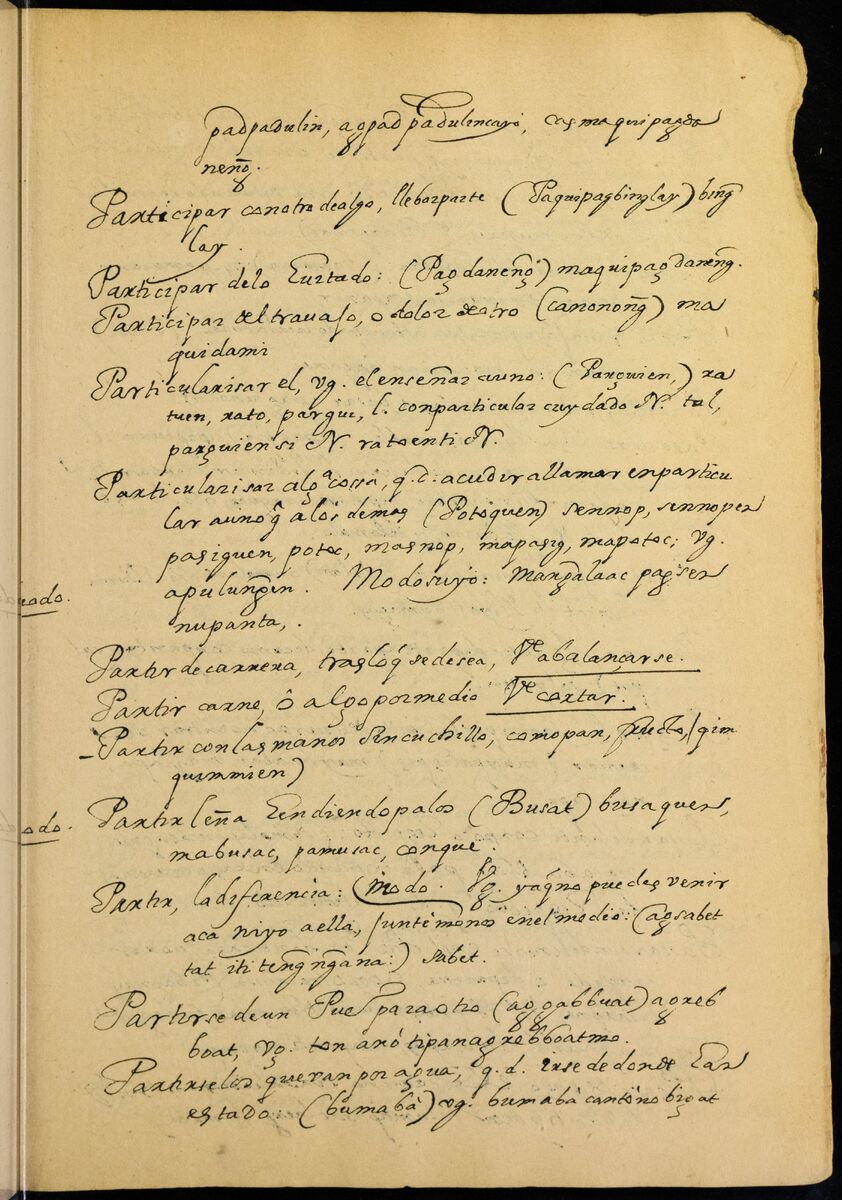 padpadulin, agpadpadulincayo, cas maquipagda
neng̃.
Participar con otro de algo, llebar parte (Paquipagbinglay) bing̃
lay.
Participar delo Eurtado: (Pag daneng̃) maquipag daneng̃.
Participar del travajo, o dolor de otro (canonong̃) ma
quidami
Particularisar el, vg. el enseñar a uno: (Parguien,) ra
tuen, rato, pargui, l. con particular cuydado N. tal,
parguien si N. ratoenti N.
Particularisar algª cossa, q. d. acudir a llamar en particu
lar a uno q̃ a los demas (Potoquen) sennop, sennopen
pasiguen, potoc, masnop, mapasig, mapotoc; vg.
apulung̃en. Modo suyo: mang̃alaac pagsen
nupanta,.
Partir de carrera, tras lo q̃ se desea, Vᵉ abalançarse.
Partir carne, ô algo por medio Vᵉ cortar.
Partir con las manos sin cuchillo, como pan, fructo, (qim
quimmien)
Partir leña Eendiendo palos (Busat) busaquen,
mabusac, pamusac, conque.
Partir, la diferencia: (modo. Vg. ya q̃ no puedes venir
aca ni yo a ella, juntemonos en el medio: (agsabet
tat iti teng̃ng̃ana:) sabet.
Partirse de un Pueᵒ para otro (aggabbuat) agreb
boat, vg. ton anó ti panagrebboatmo.
Partirse los que van por agua, q. d. irse de donde Ean
estado: (bumabà) vg. bumabà cantóno bigat
ado.
odo.